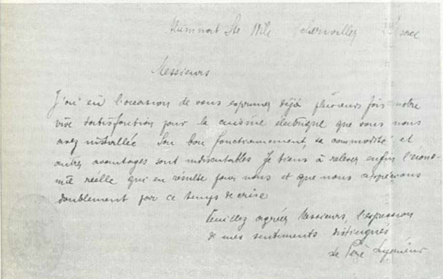 Messieurs
J'ai eu l'occasion de vous exprimer déjà plusieurs fois notre
vive satisfaction pour la cuisine électrique que vous nous
avez installée Son bon fonctionnement, sa commodité et
autres avantages sont indiscutables Je tiens à relever enfin l'écono-
mie réelle qui en résulte pour nous et que nous apprécions
doublement par ce temps de crise
Veuillez agréer Messieurs, l'expression
de mes sentiments distingués
Le Père